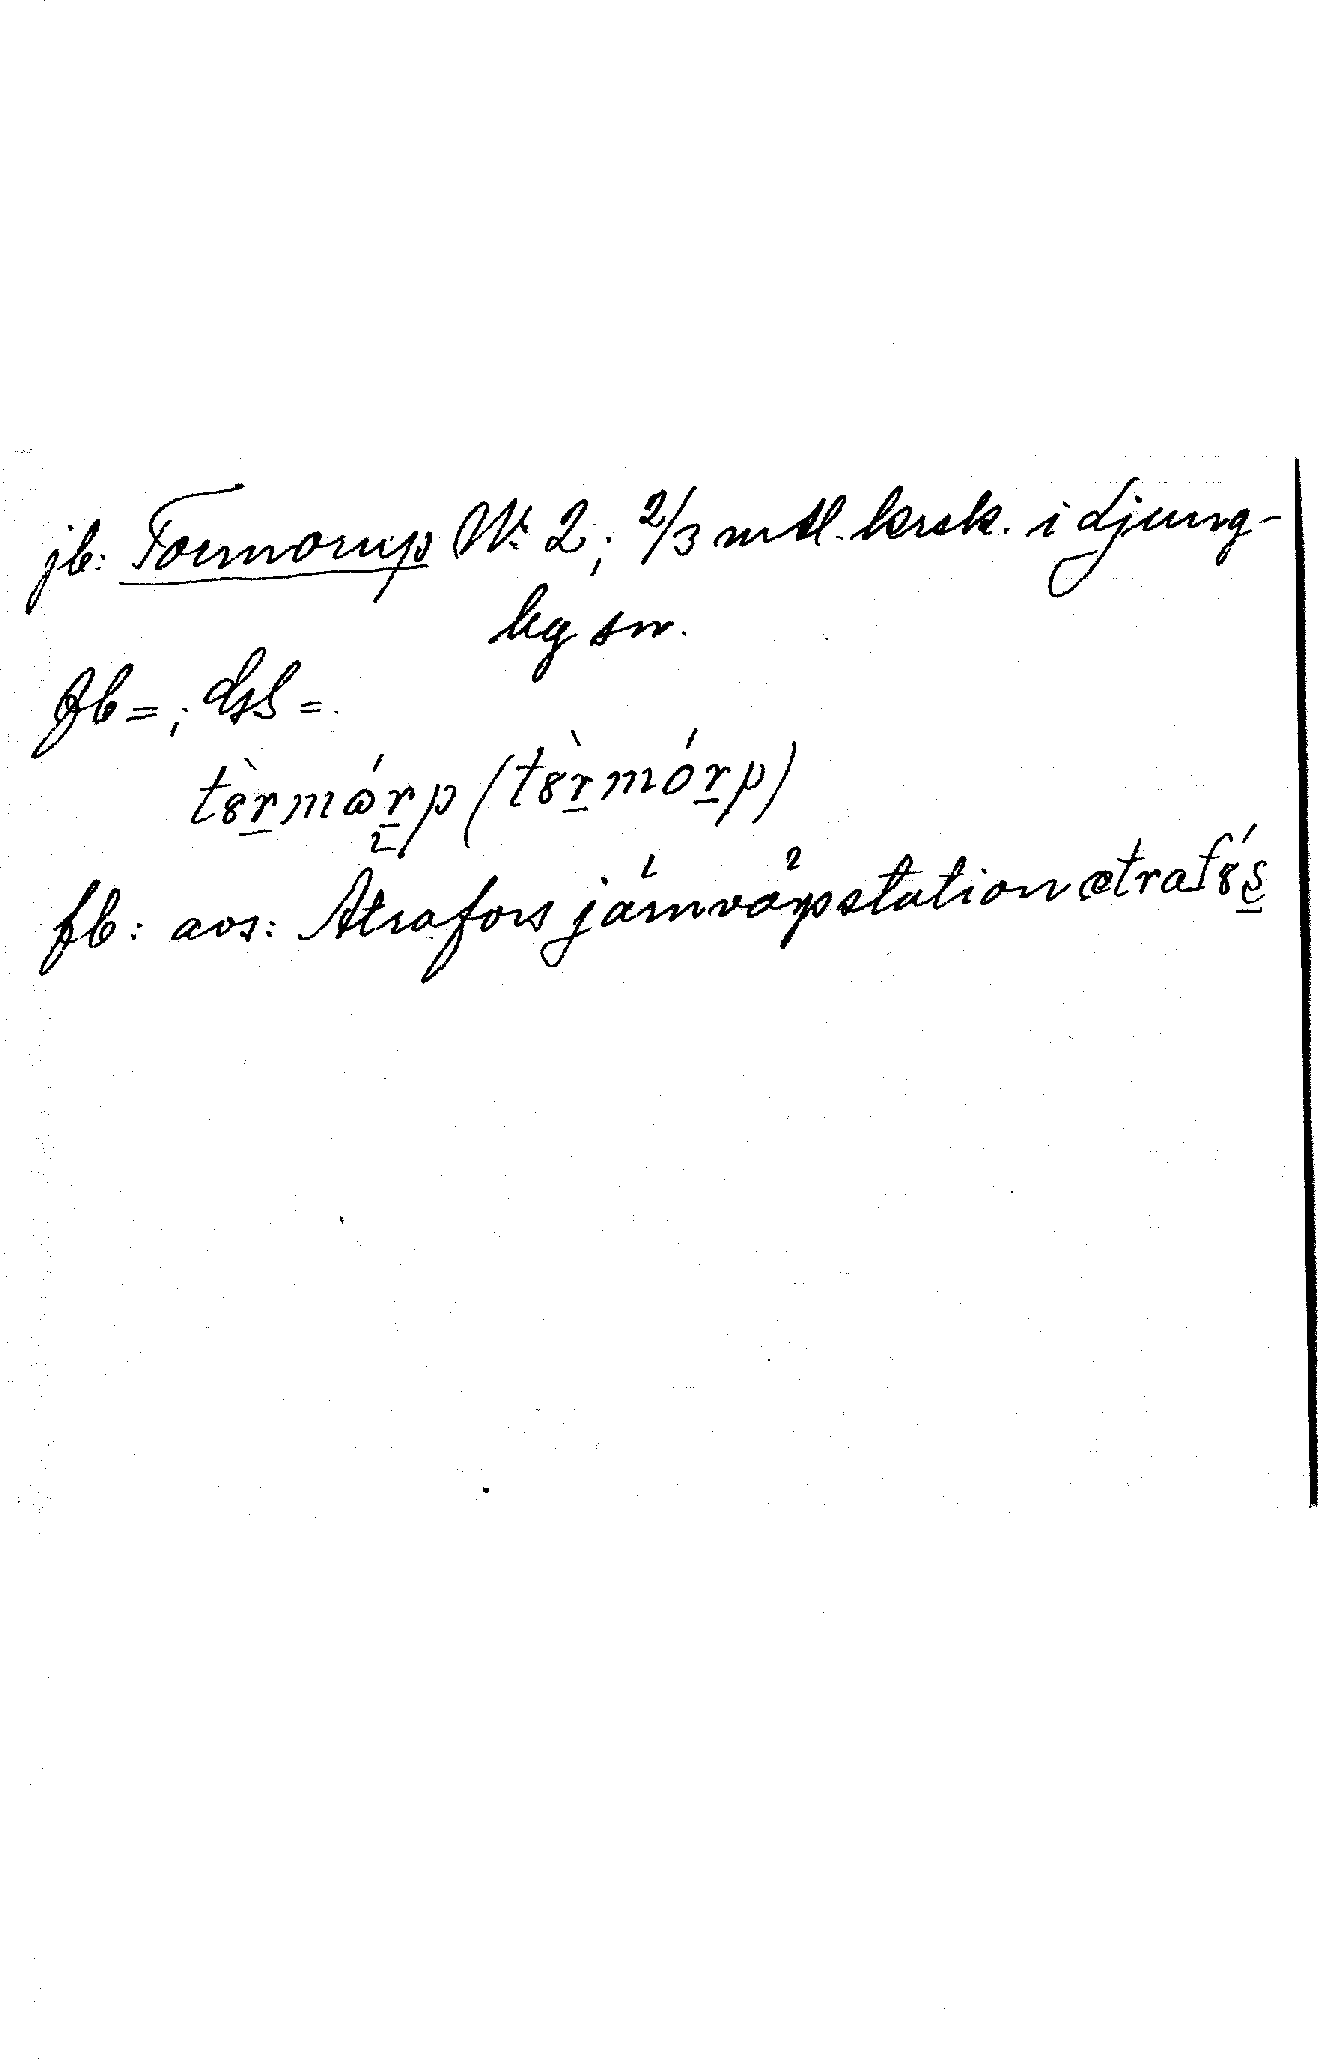 jb: Tormorup No 2; 2/3 mtl. krsk. i Ljung-
by sn.
Jb = ; GS =.
tèrmórp (tèrmórp)
fb: avs: Ätrafors järnvägsstation ätrafés